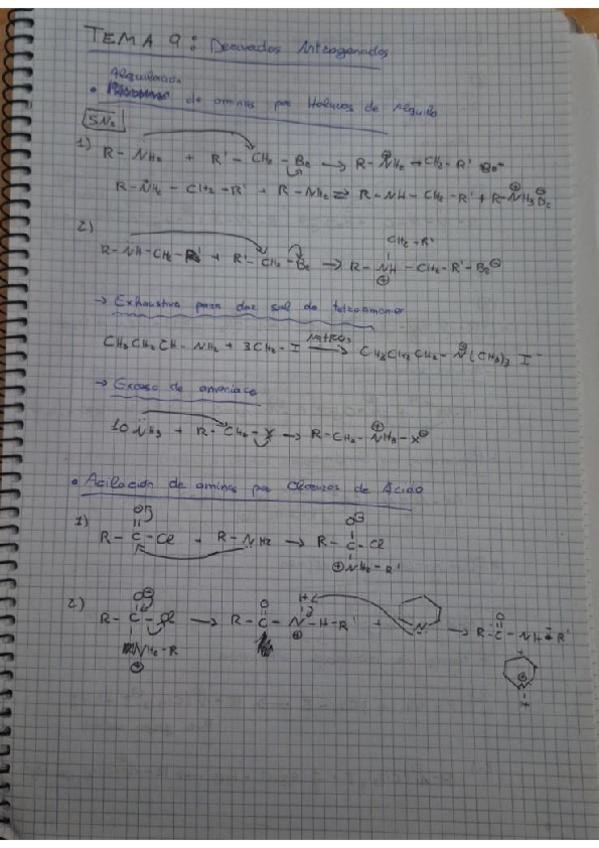 TEMA 9: Derivados Nitrogenados
Alquilación
• de aminas por Haluros de Alquilo
SN2
1) R - NH2 + R' - CH2 - Br → R - N⊕H2 - CH2 - R' Br⊖
R - NH2 - CH2 - R' + R - NH2 ⇌ R - NH - CH2 - R' + R - N⊕H3 Br⊖
2) CH2 - R'
R - NH - CH2 - R' + R' - CH2 - Br → R - NH - CH2 - R' - Br⊖
⊕
→ Exhaustiva para dar sal de
CH3CH2CH - NH2 + 3CH3 - I → CH3CH2CH2 - N⊕(CH3)3 I-
→ Exceso de amoniaco
10 NH3 + R - CH2 - X → R - CH2 - N⊕H3 - X⊖
• Acilación de aminas por Cloruros de Ácido
1) O O⊖
R - C - Cl + R - NH2 → R - C - Cl
⊕NH2 - R'
2) O⊖ O H
R - C - Cl → R - C - N - H - R' + N → R - C - NH - R'
NH2 - R ⊕ +
⊕